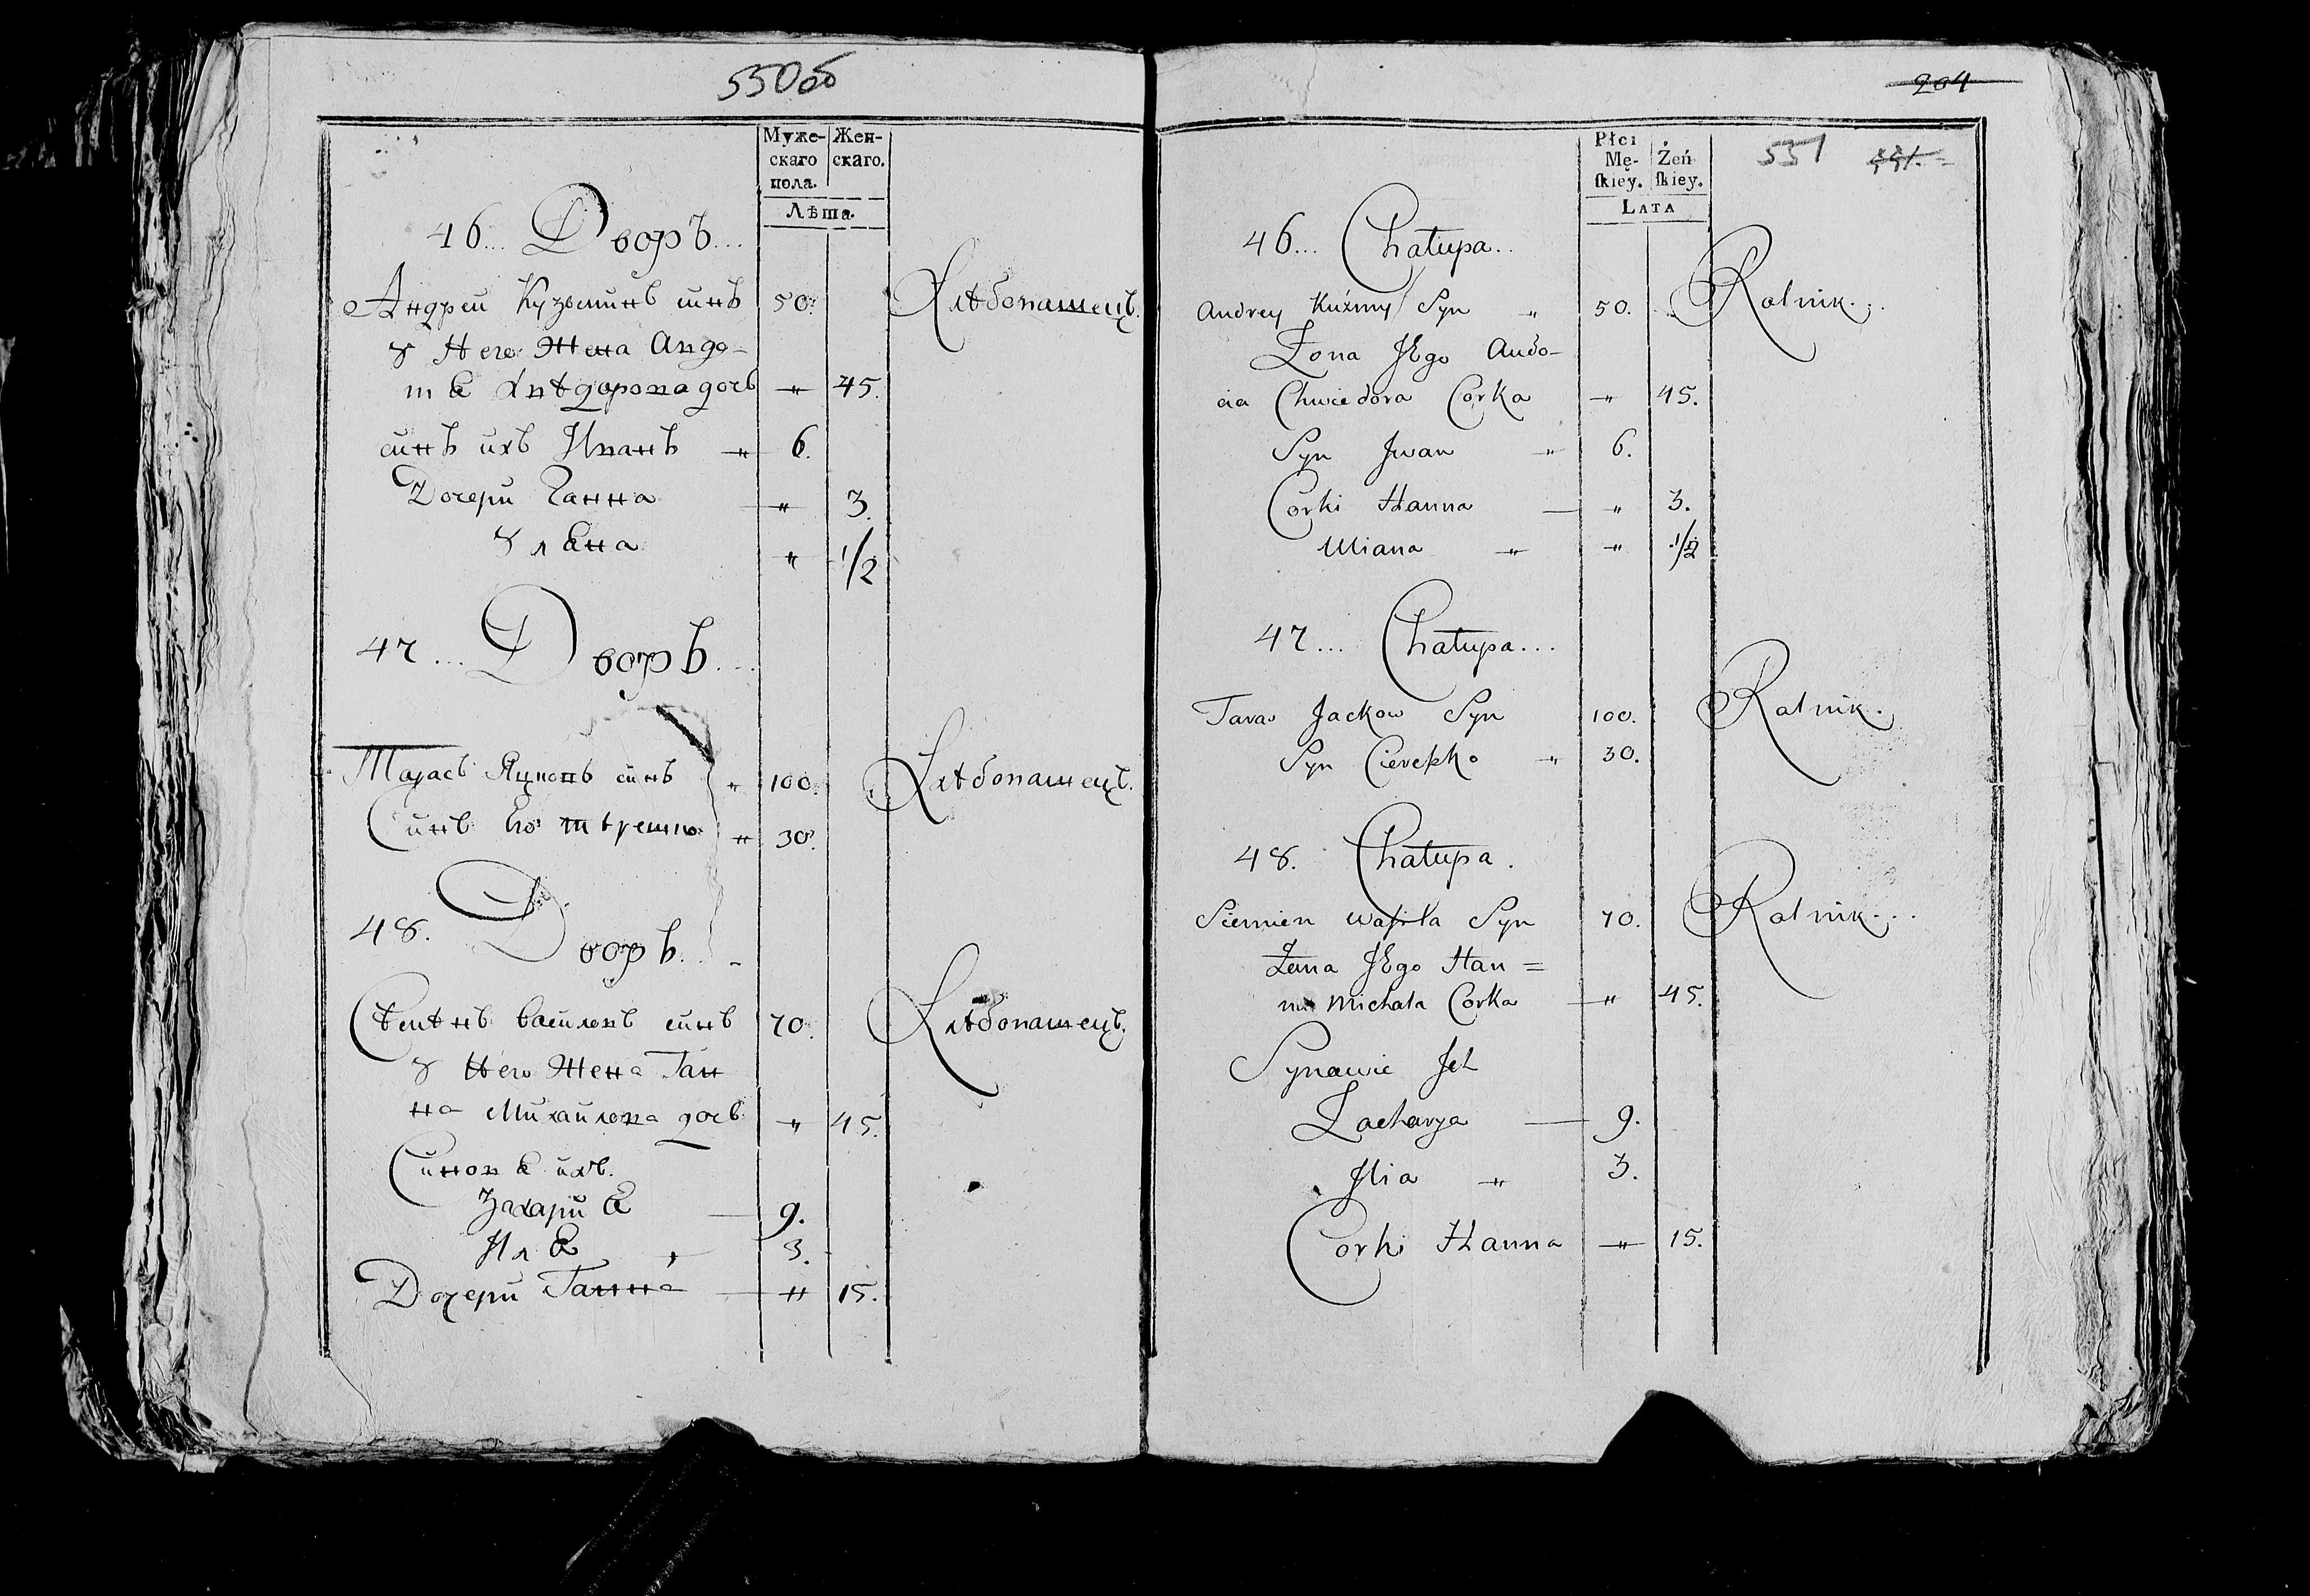 550об
Муже-
скаго
пола.
Жен-
скаго.
Лѣта.
46... Дворъ...
Андрей Кузьминъ синъ 50. Хлѣбопашецъ.
У Него Жена Авдо-
тя Хвѣдорова дочь " 45.
синъ ихъ Иванъ " 6.
Дочери Ганна " 3.
Уляна " 1/2
47... Дворъ...
Тарасъ Яцковъ синъ " 100. Хлѣбопашецъ.
Синъ Его " 30.
48. Дворъ...
Сѣмѣнъ Василовъ синъ 70. Хлѣбопашецъ.
У Него Жена Ган
на Михайлова дочь " 45.
Синовя ихъ.
Захария 9.
Иля " 3.
Дочери Ганна " 15.
204
Płci
Mę-
ſkiey.
Żeń
ſkiey.
551 551.
LATA
46... Chałupa..
Andrey Kuźmy Syn " 50. Rolnik..
Żona JEgo Audo-
cia Chwiedora Corka " 45.
Syn Jwan " 6.
Corki Hanna " 3.
Uliana " " 1/2
47... Chałupa...
Taras Jackow Syn 100. Rolnik.
Syn Cereszko " 30.
48. Chałupa.
Siemien Wasila Syn 70. Rolnik...
Żona JEgo Han =
na Michała Corka " 45.
Synowie Jch
Zacharya 9.
Jlia " 3.
Corki Hanna " 15.